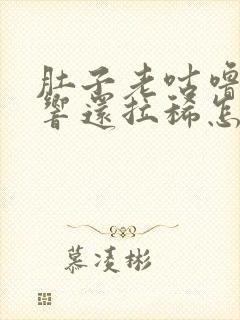 肚子老咕噜
响还拉稀怎
慕凌彬